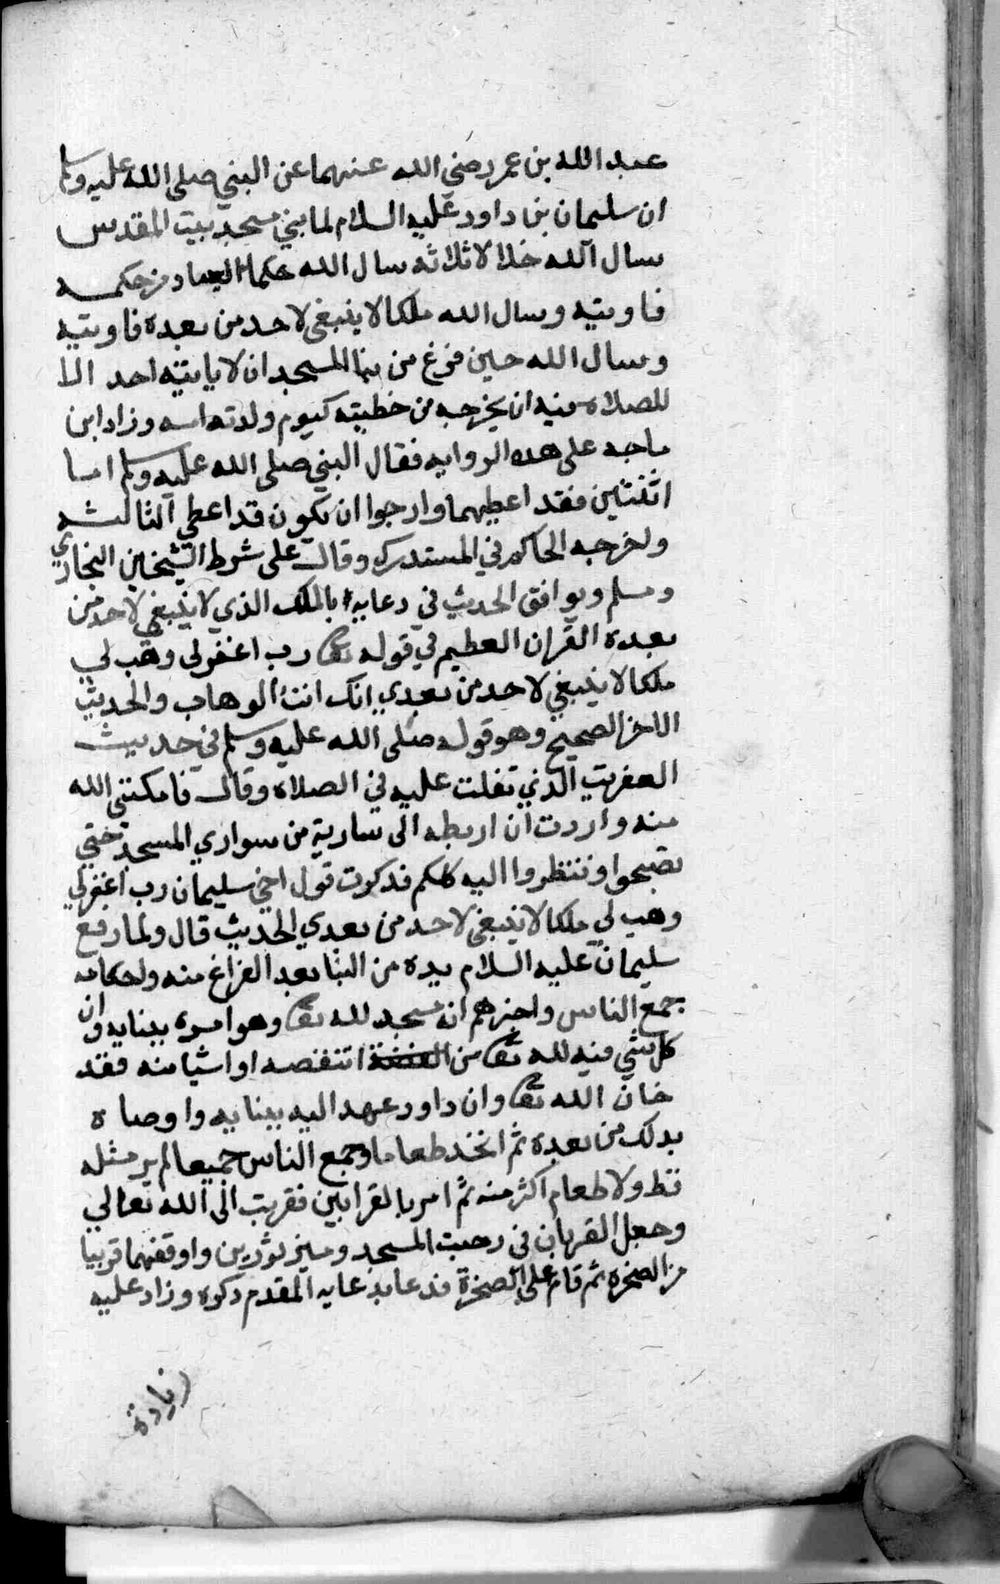 عبد الله بن عمر رضي الله عنهما عن النبي صلى الله عليه وسلم
ان سليمان بن داود عليه السلام لما بني مسجد بيت المقدس
سال الله خلالا ثلاثه سال الله حكما يصادف حكمه
فاوتيه وسال الله ملكا لا ينبغي لاحد من بعده فاوتيه
وسال الله حين فرغ من بنا المسجد ان لا ياتيه احد الا
للصلاه فيه ان يخرجه من خطيته كيوم ولدته امه وزاد ابن
ماجه على هده الروايه فقال النبي صلى الله عليه وسلم اما
اثنتين فقد اعطيهما وارجوا ان يكون قد اعطي الثالثه
واخرجه الحاكم في المستدرك وقال على شرط الشيخين البخاري
ومسلم ويوافق الحديث في دعايه بالملك الذي لا ينبغي لاحد من
بعده القران العظيم في قوله تعا رب اغفر لي وهب لي
ملكا لا ينبغي لاحد من بعدي انك انت الوهاب والحديث
الاخر الصحيح وهو قوله صلى الله عليه وسلم في حديث
العفريت الذي تفلت عليه في الصلاه وقال فامكنني الله
منه واردت ان اربطه الى سارية من سواري المسجد حتي
تصبحوا وتنتظروا اليه كلكم فدكرت قول اخي سليمان رب اغفر لي
وهب لي ملكا لا ينبغي لاحد من بعدي الحديث قال ولما رفع
سليمان عليه السلام يده من البنا بعد الفراغ منه واحكامه
جمع الناس واخبرهم انه مسجد لله تعا وهو امره ببنايه وان
كل شي فيه لله تعا من انتقصه او اشيا منه فقد
خان الله تعا وان داود عهد اليه ببنايه واوصاه
بدلك من بعده ثم اتخد طعاما وجمع الناس جميعا لم ير مثله
قط ولا طعام اكثر منه ثم امر بالقرابين فقربت الى الله تعالي
وجعل القربان في رحبت المسجد وميز ثورين واوقفهما قريبا
من الصخره ثم قام على الصخرة فدعا بدعايه المقدم دكره وزاد عليه
زيادة